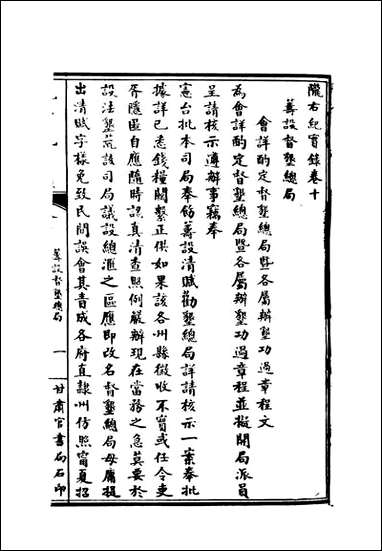 隴右紀實錄卷十
籌設督墾總局
會詳酌定督墾總局曁各屬辦墾功過章程文
為會詳酌定督墾總局曁各屬辦墾功過章程並擬開局派員
呈請核示遵辦事竊奉
憲台批本司局奉飭籌設清賦勸墾總局詳請核示一案奉批
據詳已悉錢糧關繫正供如果該各州縣徵收不實或任令吏
胥隱匿自應隨時認真清查照例嚴辦現在當務之急莫要於
設法墾荒該司局議設總滙之區應即改名督墾總局毋庸提
出清賦字樣免致民間誤會其責成各府直隸州仿照甯夏招
籌設督墾總局
一
甘肅官書局石印